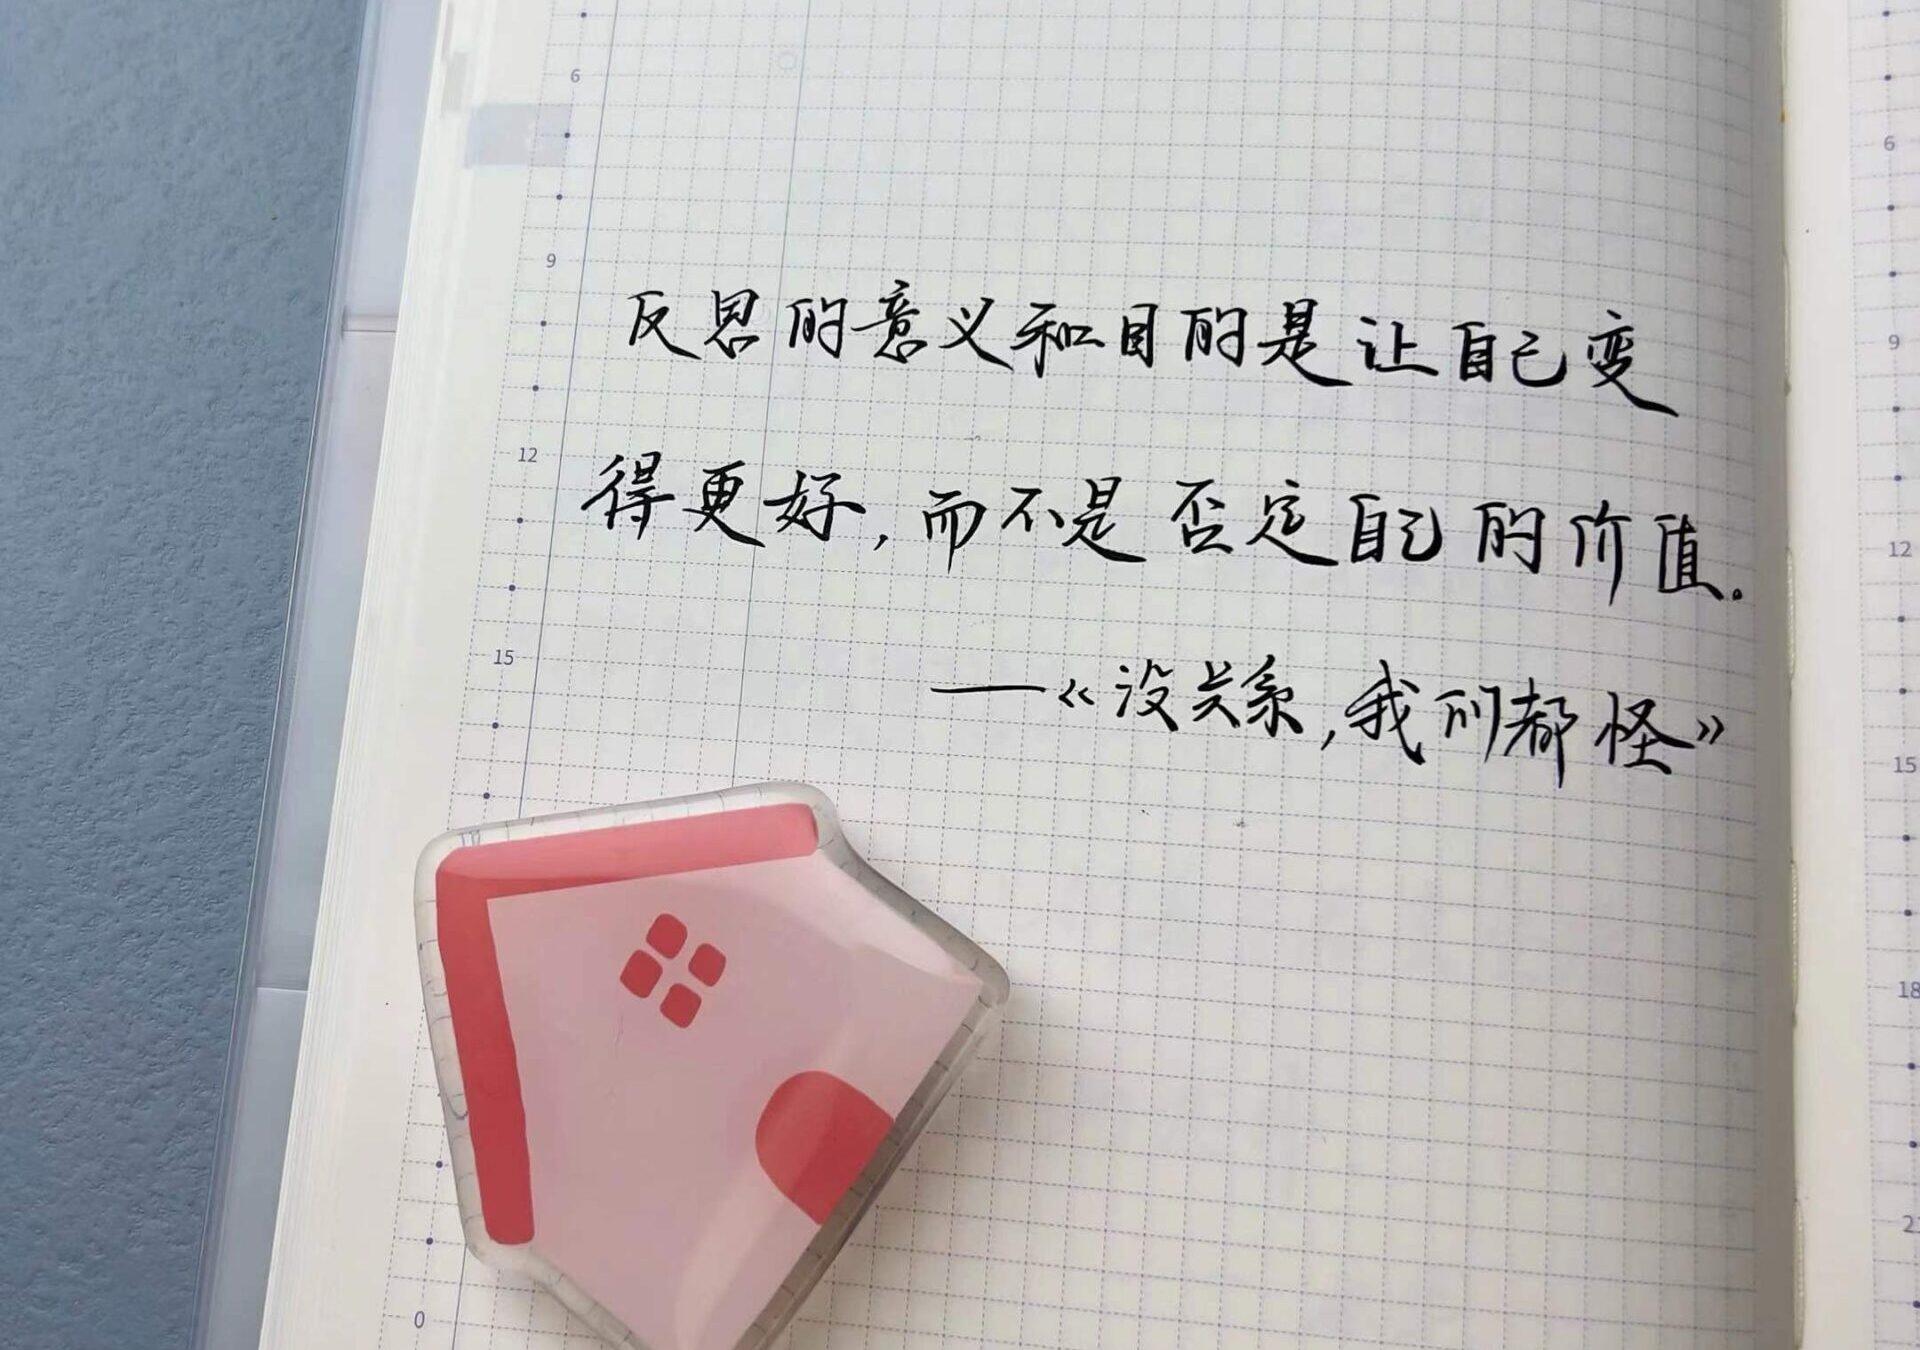 反思的意义和目的是让自己变
得更好,而不是否定自己的价值。
——《没关系,我们都怪》
6
9
12
15
0
6
9
12
15
18